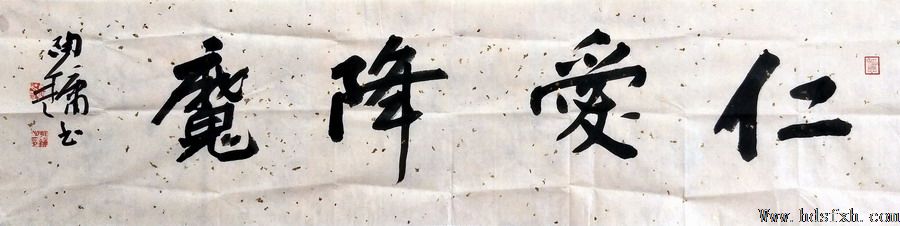 仁愛降魔
Www.hdsfxh.com